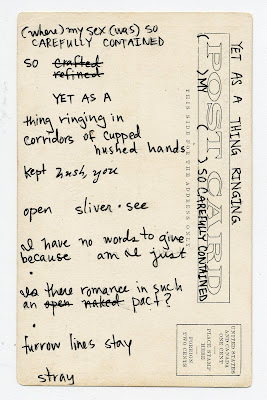 (where) my sex (was) so
CAREFULLY CONTAINED
so crafted
refined
YET AS A
thing ringing in
corridors of cupped
hushed hands
kept hush, you
open sliver · see
I have no words to give
because am I just
·
Is there romance in such
an open naked pact?
·
furrow lines stay
stray
YET AS A THING RINGING
( ) MY ( ) SO CAREFULLY CONTAINED
POST CARD
THIS SIDE FOR THE ADDRESS ONLY
UNITED STATES
AND CANADA
ONE CENT
PLACE STAMP
HERE
FOREIGN
TWO CENTS